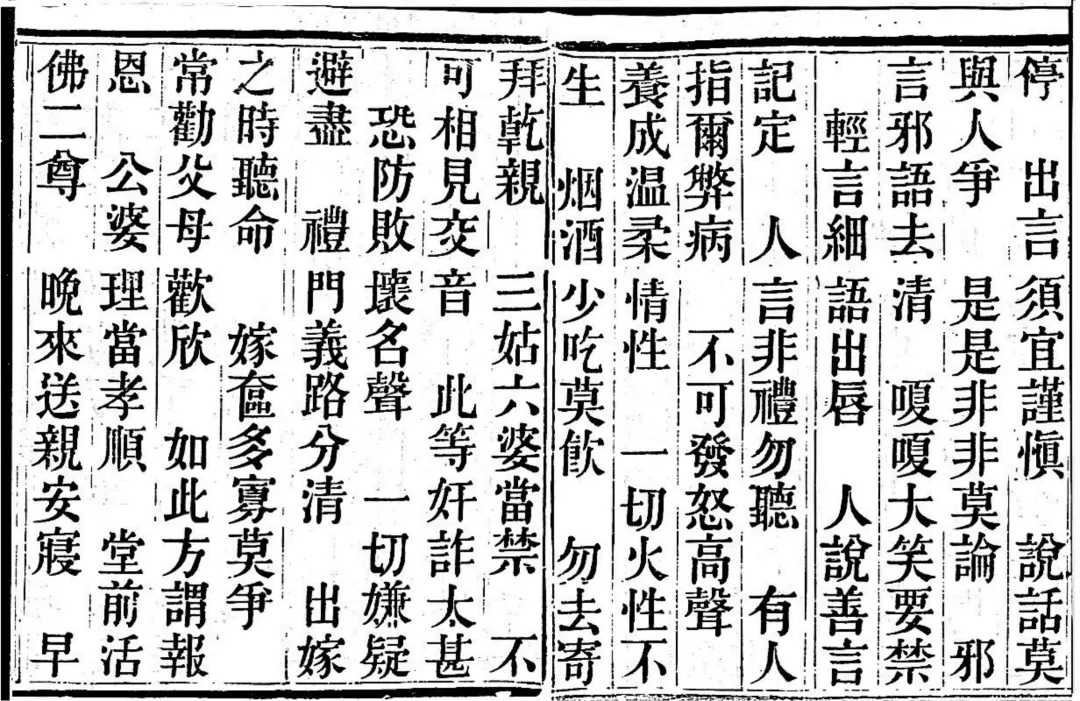 停 出言須宜謹慎 說話莫
與人爭 是是非非莫論 邪
言邪語去清 嗄嗄大笑要禁
輕言細語出唇 人說善言
記定 人言非禮勿聽 有人
指爾弊病 不可發怒高聲
養成温柔情性 一切火性不
生 烟酒少吃莫飲 勿去寄
拜乾親 三姑六婆當禁 不
可相見交音 此等奸詐太甚
恐防敗壞名聲 一切嫌疑
避盡 禮門義路分清 出嫁
之時聽命 嫁奩多寡莫爭
常勸父母歡欣 如此方謂報
恩 公婆理當孝順 堂前活
佛二尊 晚來送親安寢 早